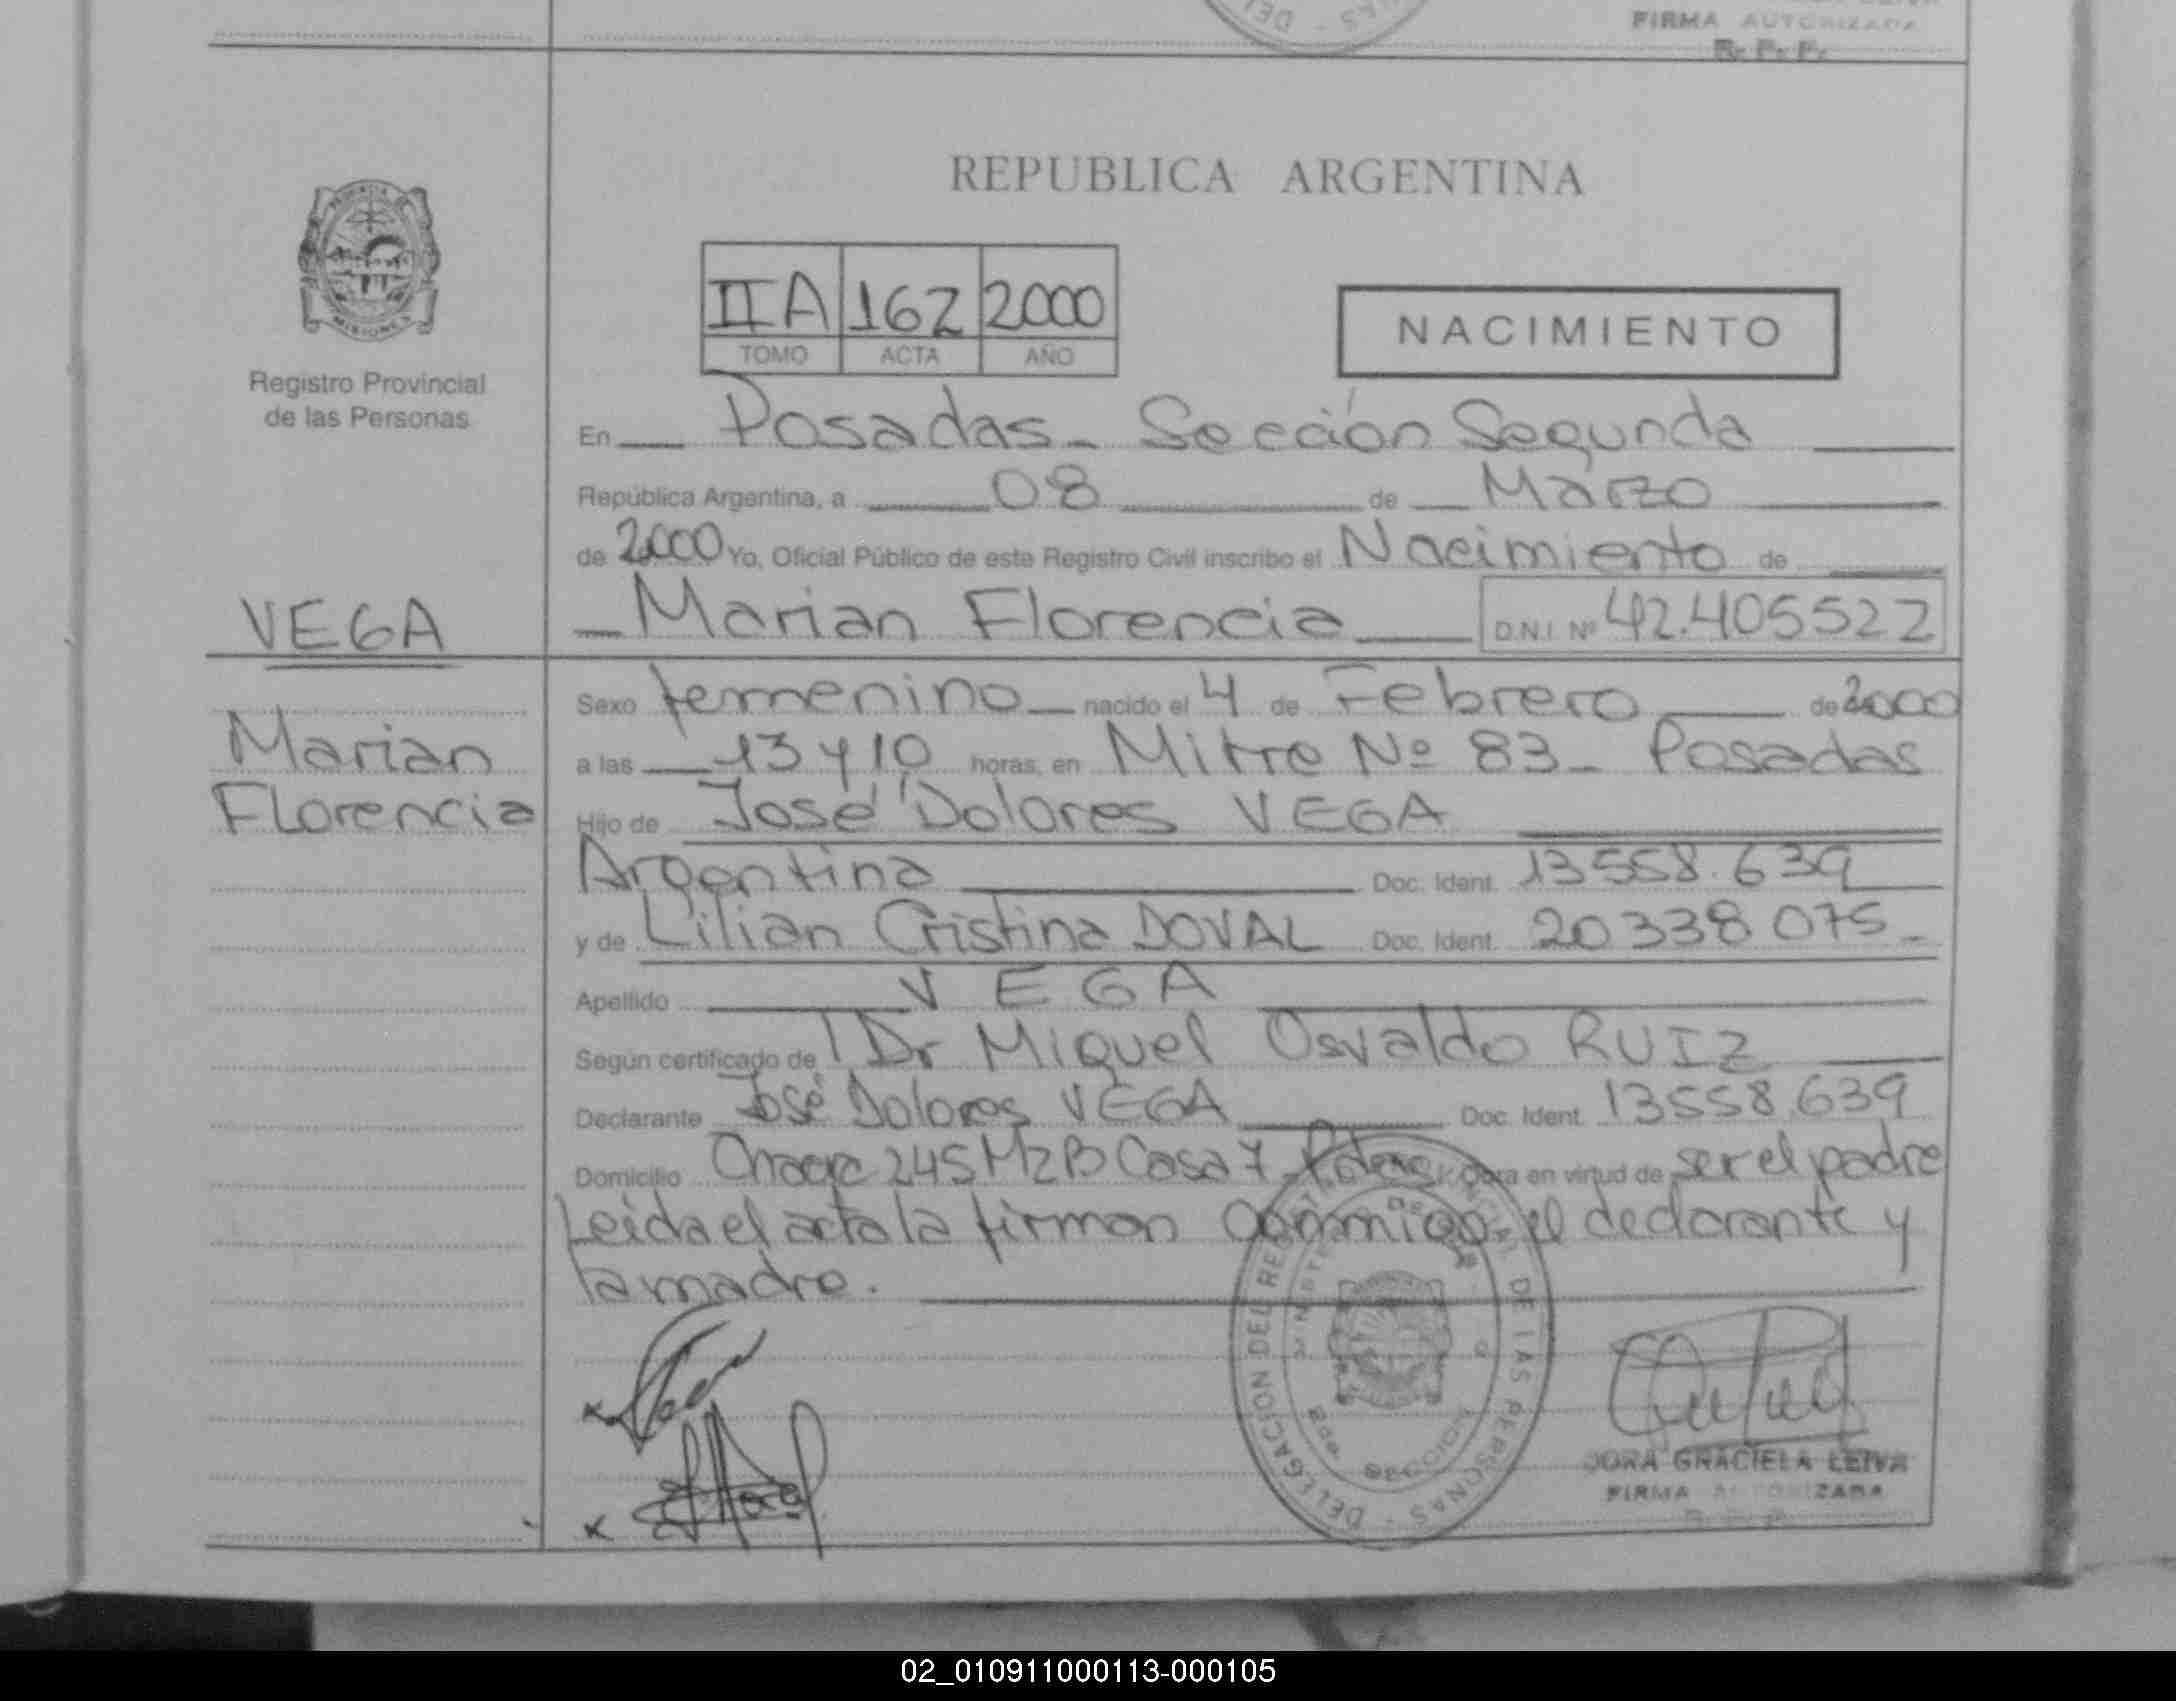 FIRMA AUTORIZADA
R. P. P.
PROVINCIA
MISIONES
Registro Provincial
de las Personas
REPUBLICA ARGENTINA
II A 162 2000
TOMO ACTA AÑO
NACIMIENTO
En Posadas - Sección Segunda
República Argentina, a 08 de Marzo
de 2000 Yo, Oficial Público de este Registro Civil inscribo el Nacimiento de
VEGA
Marian Florencia D.N.I. Nº 42.405522
Marian
Florencia
Sexo femenino nacido el 4 de Febrero de 2000
a las 13 y 10 horas, en Mitre Nº 83 - Posadas
Hijo de José Dolores VEGA
Argentina Doc. Ident. 13558.639
y de Lilian Cristina DOVAL Doc. Ident. 20338075
Apellido VEGA
Según certificado de Dr Miguel Osvaldo RUIZ
Declarante José Dolores VEGA Doc. Ident. 13558.639
Domicilio Chacra 245 Mz B Casa 7 Pdas Obra en virtud de ser el padre
Leida el acta la firman conmigo el declarante y
la madre.
DELEGACION DEL REGISTRO PROVINCIAL DE LAS PERSONAS
DORA GRACIELA LEIVA
FIRMA AUTORIZADA
02_010911000113-000105